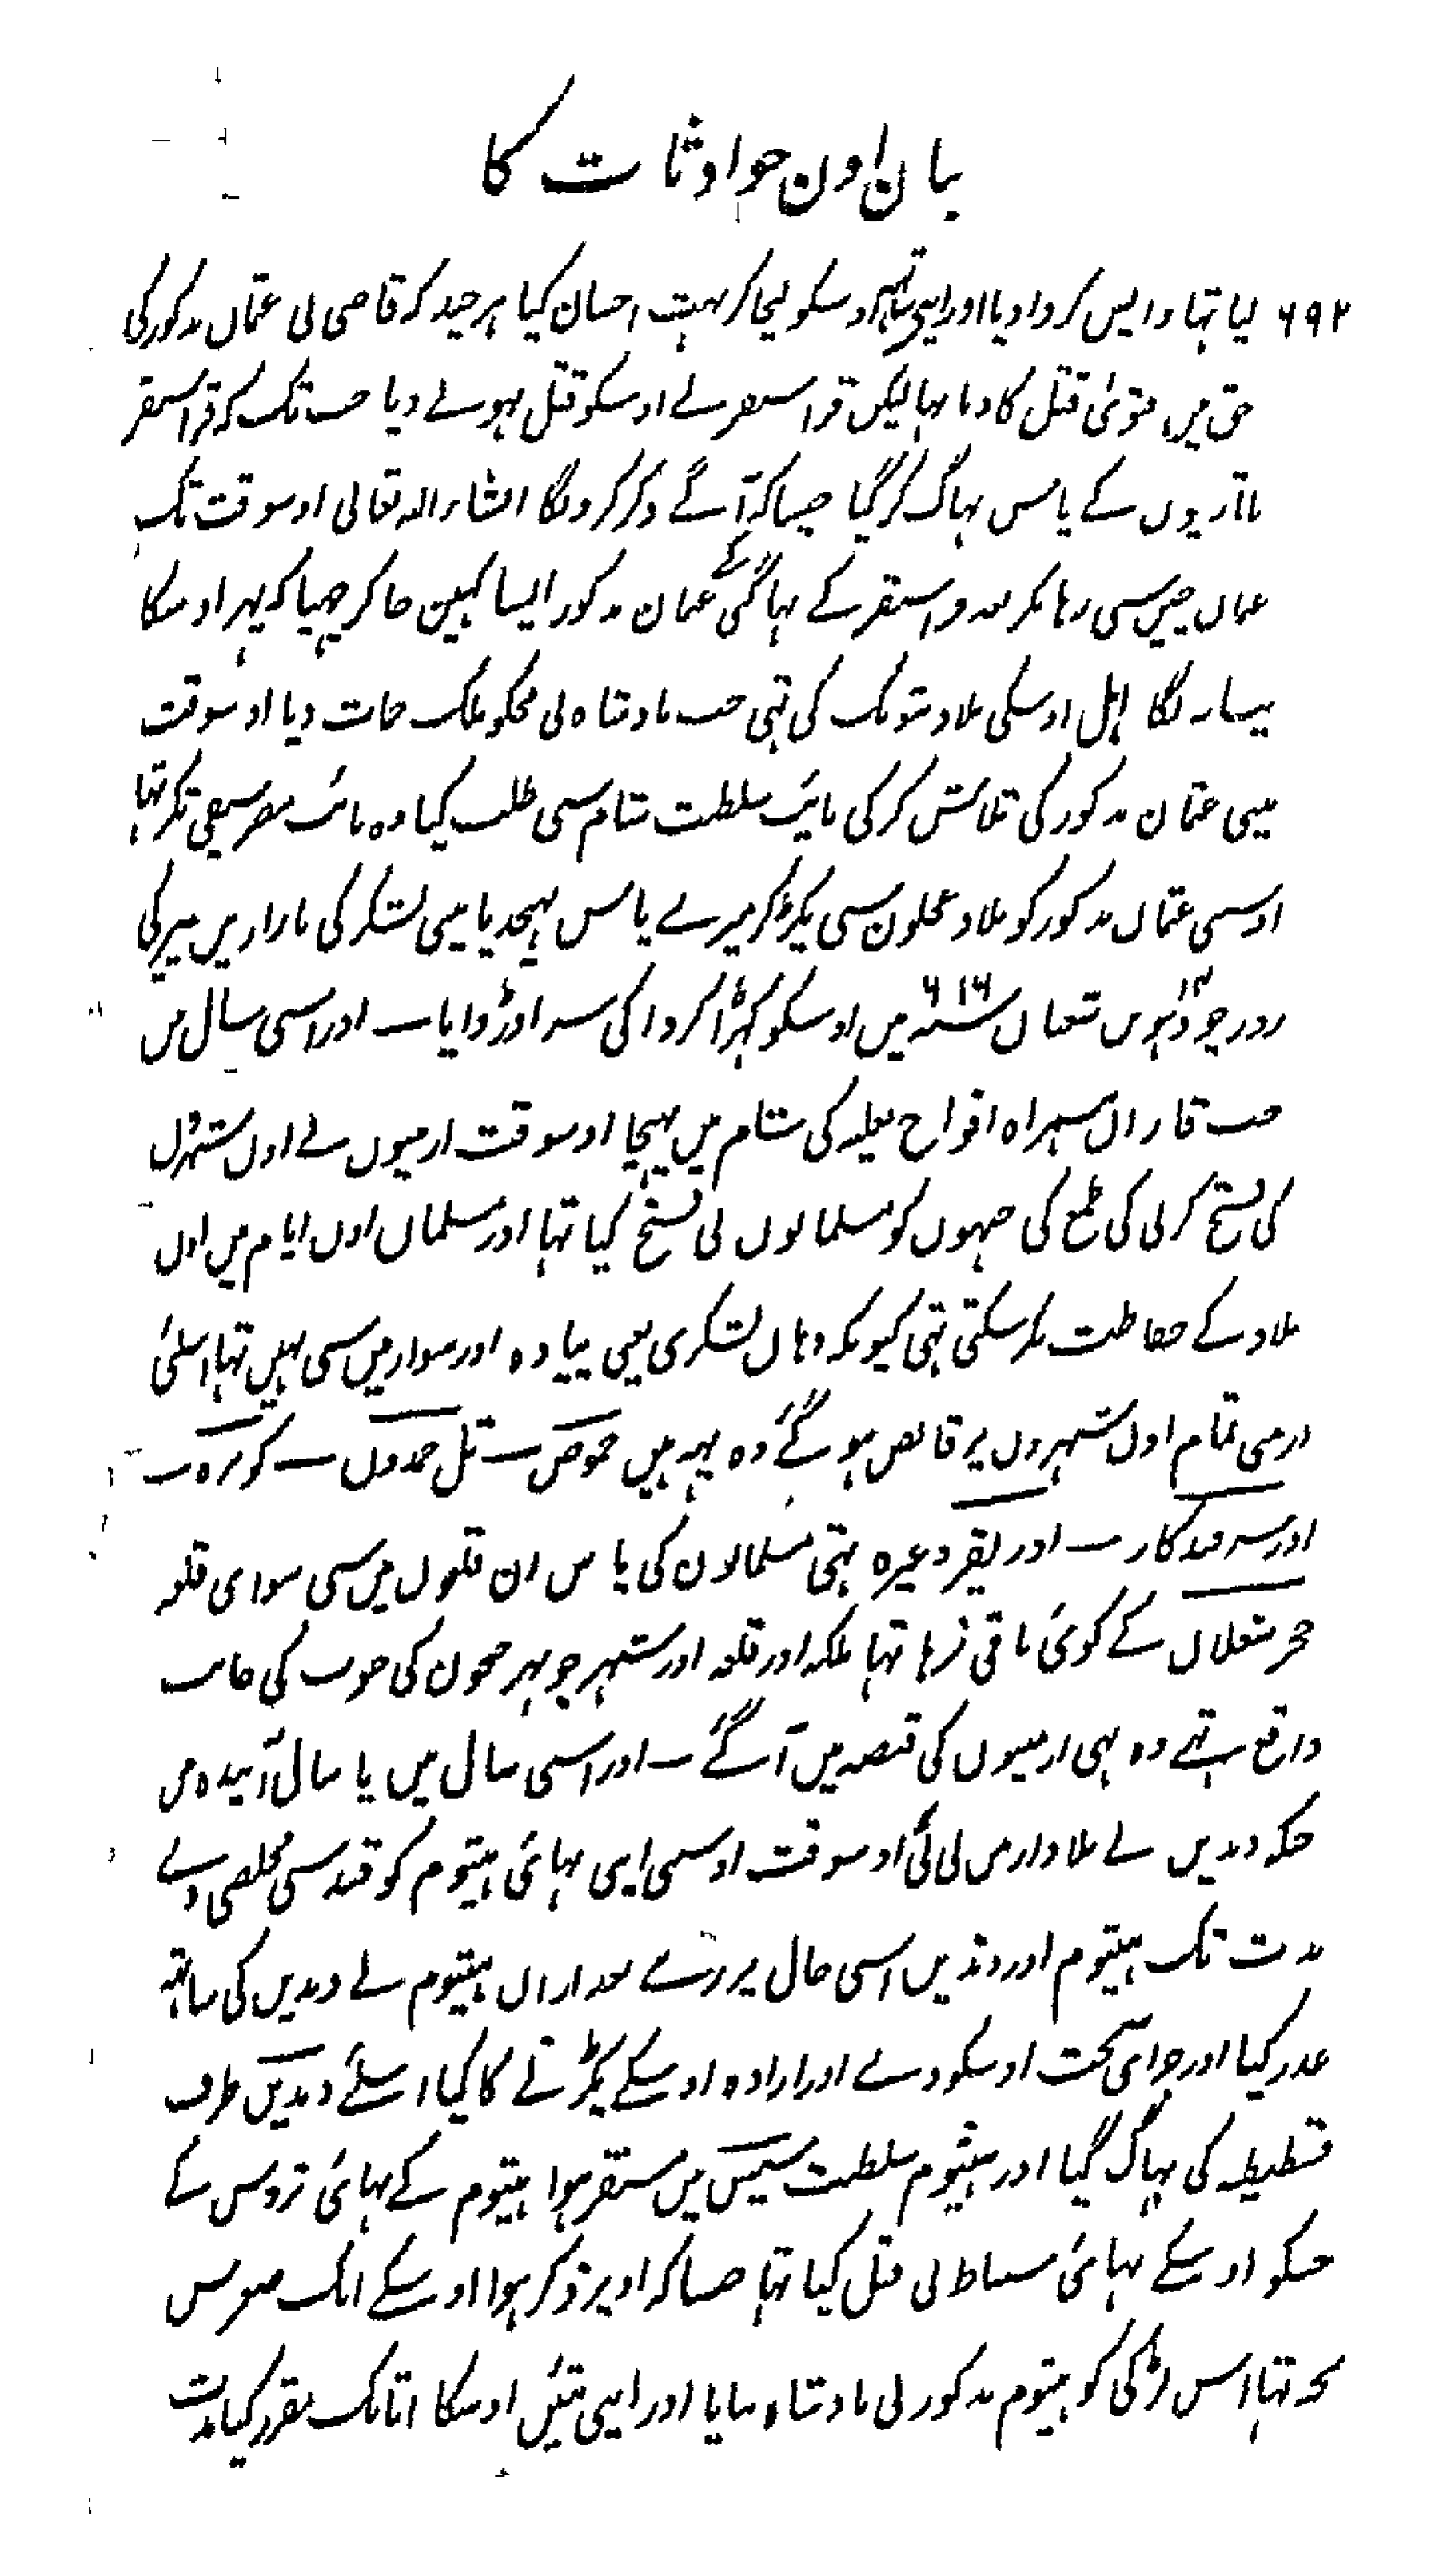 بیان اون حوادثات کا
۶۹۲ لیا تہا واپس کروا دیا اور اپنی ساتہہ اوسکو لیجا کر بہت احسان کیا ہر چند کہ قاضی نی عثمان مذکور کی
حق میں فتویٰ قتل کا دیا تہا لیکن قراسنقر نے اوسکو قتل ہونے دیا جب تک کہ قراسنقر
تاتاریوں کے پاس بہاگ کر گیا جیسا کہ آگے ذکر کرونگا انشاء اللہ تعالی اوسوقت تک
عثمان چین سی رہا مگر بعد قراسنقر کے بہاگنی کے عثمان مذکور ایسا کہین جا کر چہپا کہ پہر اوسکا
پتا نہ لگا اہل اوسکی بلاد شوبک کی تہی جب بادشاہ نی مجکو ملک حمات دیا اوسوقت
مینی عثمان مذکور کی تلاش کر کی نایب سلطنت شام سی طلب کیا وہ نائب مصر سیفی تنکز تہا
اوسنی عثمان مذکور کو بلاد عجلون سی پکڑ کر میرے پاس بہیجدیا مینی لشکر کی بازار میں پیر کی
روز چودہویں ۱۴ شعبان سنہ ۷۱۶ میں اوسکو کہڑا کروا کی سر اوڑوا یا ـ اور اسی سال میں
جب قازان ہمراہ افواج مغلیہ کی شام میں پہنچا اوسوقت ارمنیوں نے اون شہروں
کی فتح کرنی کی طمع کی جنہوں کو مسلمانوں نی فتح کیا تہا اور مسلمان اون ایام میں اون
بلاد کے حفاظت نکر سکتی تہی کیونکہ وہاں لشکری یعنی پیادہ اور سوار میں سی نہیں تہا اسلئی
ارمنی تمام اون شہروں پر قابض ہو گئے وہ یہہ ہیں حموص ـ تل حمدون ـ کویرہ ـ
اور سرفندکار ـ اور نقیر وغیرہ تہی مسلمانون کی پاس ان قلعوں میں سی سوای قلعہ
حجر شغلان کے کوئی باقی نرہا تہا بلکہ اور قلعہ اور شہر جو نہر جیحون کی جنوب کی جانب
واقع تہے وہ بہی ارمنیوں کی قبضہ میں آ گئے ـ اور اسی سال میں یا سال آیندہ میں
جبکہ دندین نے بلاد ارمن لی لئی اوسوقت اوسنی اپنی بہائی ہیتوم کو قید سی مخلصی دے
مدت تک ہیتوم اور دندین اسی حال پر رہے بعد ازان ہیتوم نے دندین کی ساتہہ
غدر کیا اور جزای سخت اوسکو دے اور ارادہ اوسکے پکڑنے کا کیا اسلئے دندین طرف
قسطنطنیہ کی بہاگ گیا اور ہیثوم سلطنت سیس میں مستقر ہوا ہیتوم کے بہائی تروس کے
جسکو اوسکے بہائی سنباط نی قتل کیا تہا جیسا کہ اوپر ذکر ہوا اوسکے ایک صغرسن
بچہ تہا اس لڑکی کو ہیتوم مذکور نی بادشاہ بنایا اور اپنی تئیں اوسکا اتابک مقرر کیا مدت